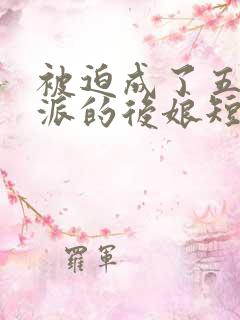 被迫成了五
派的後娘短
羅軍